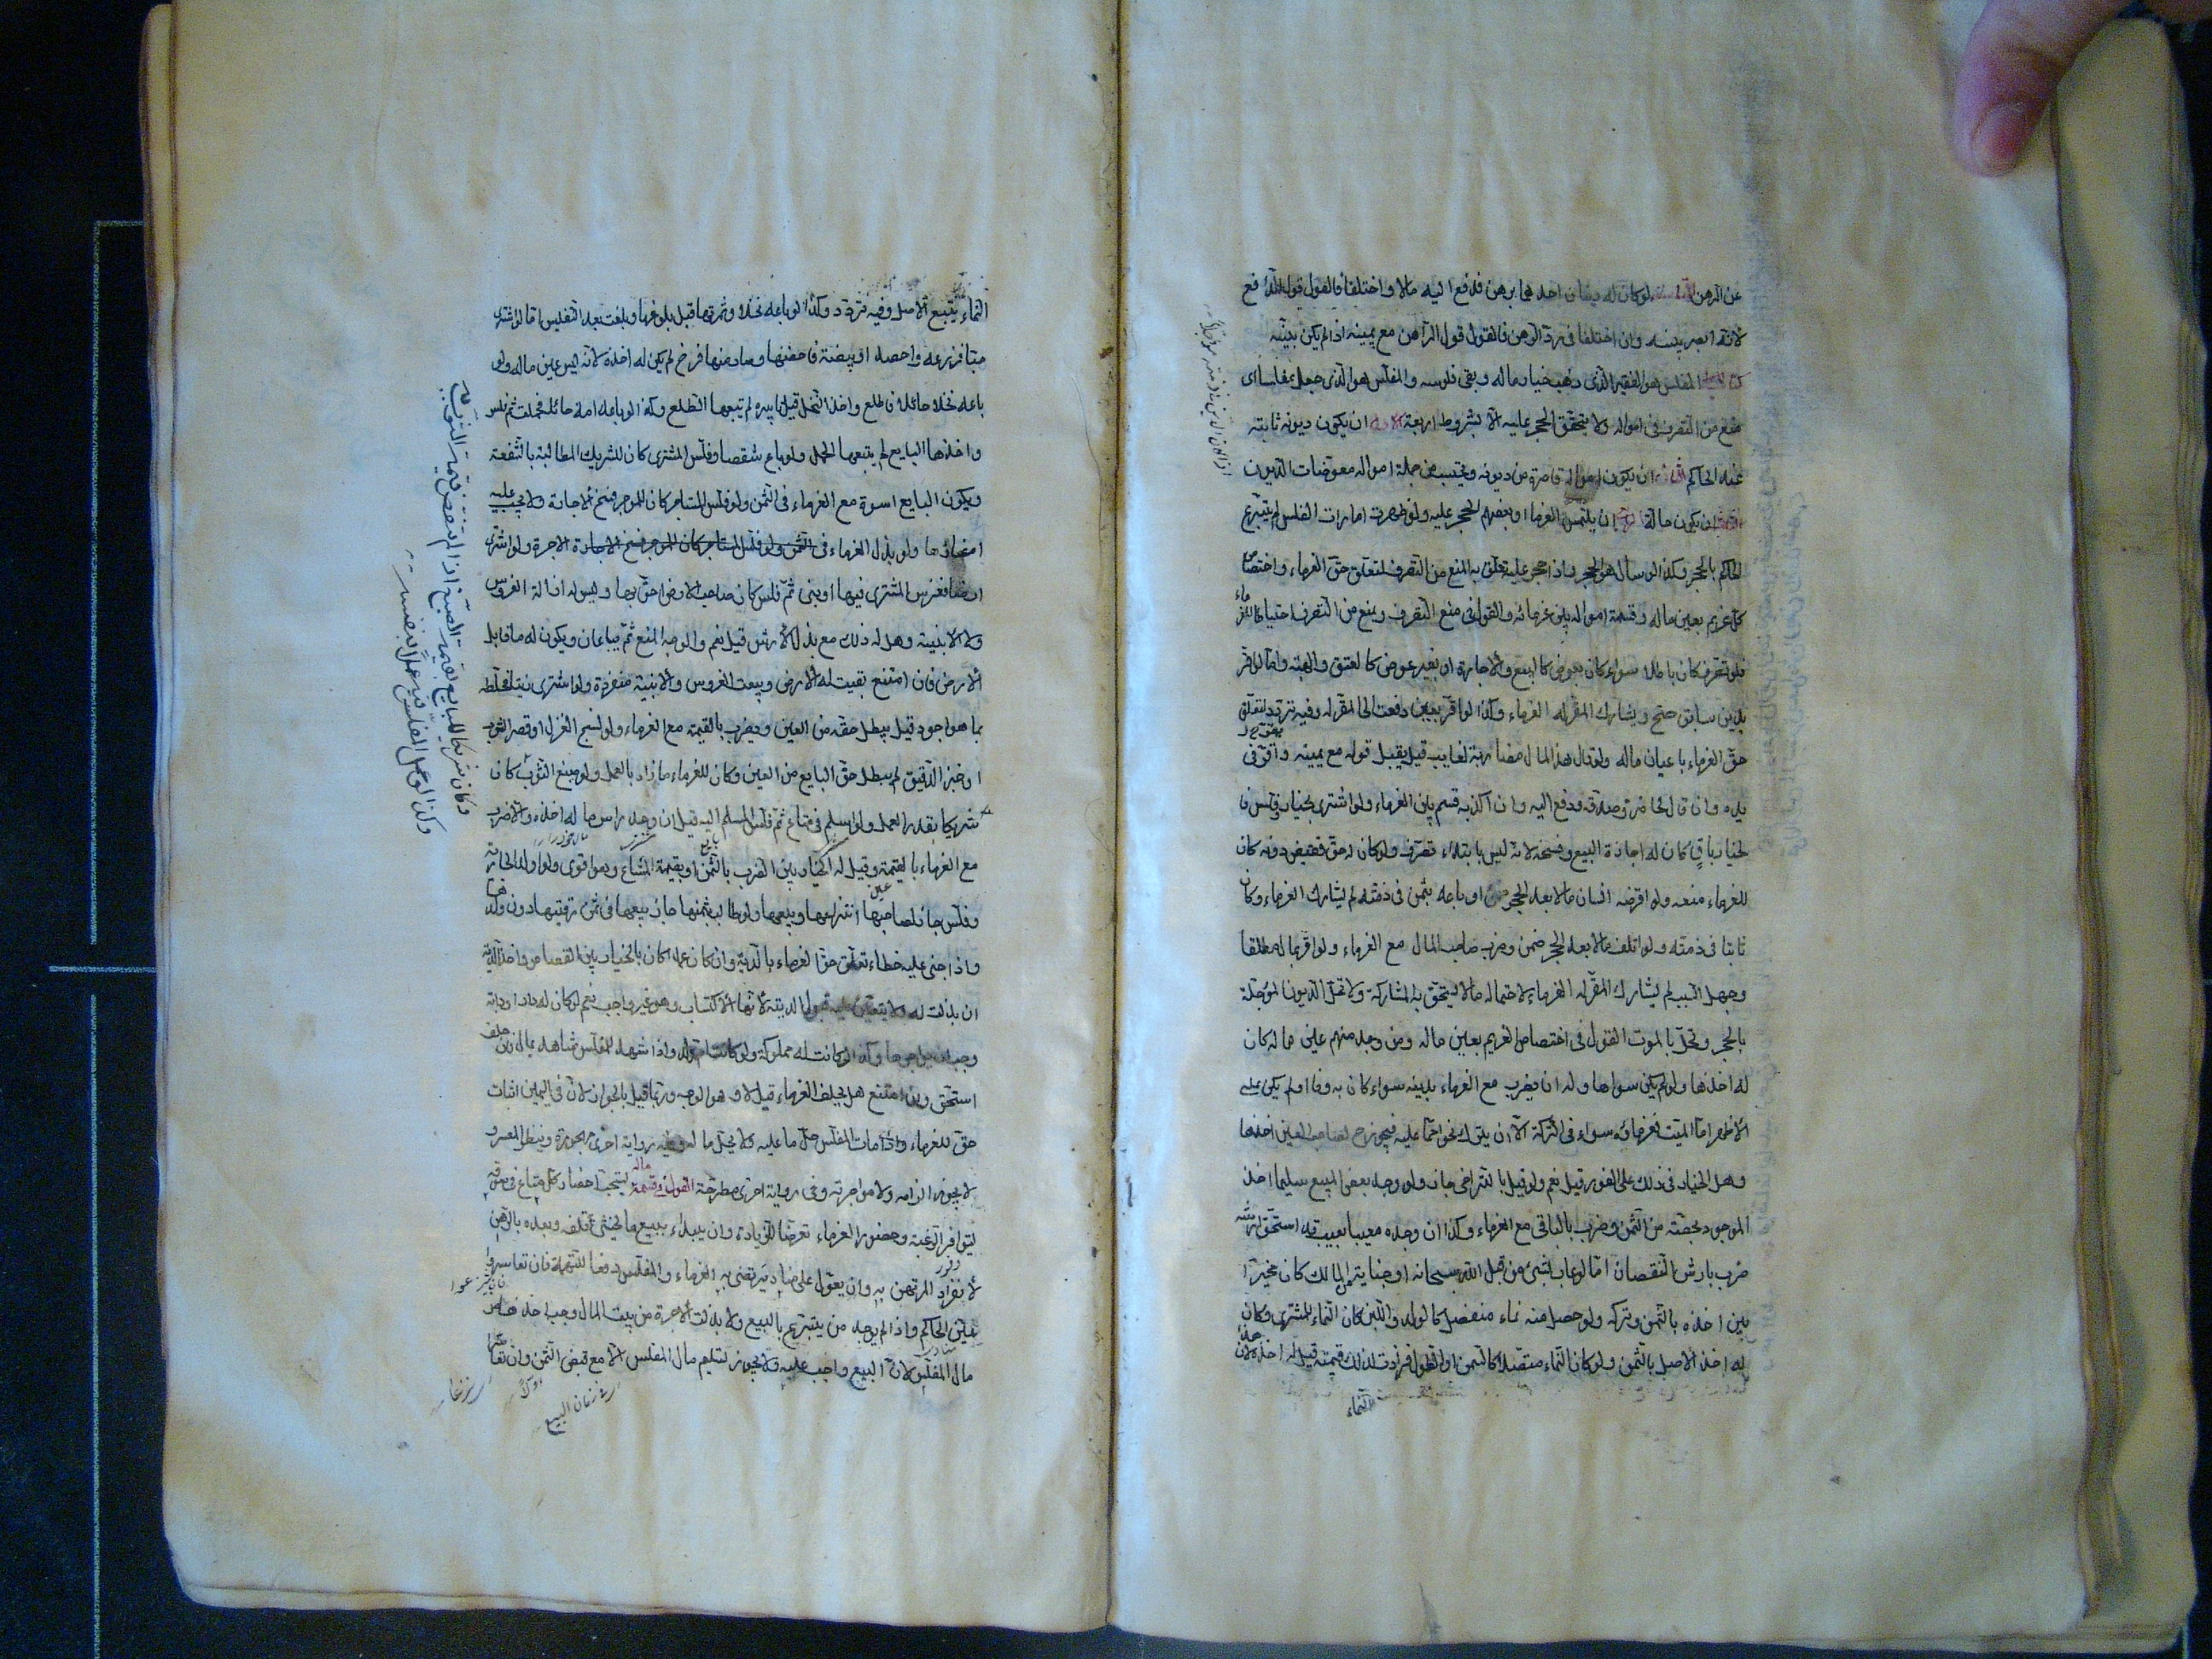 عن الرهن لوكان له دينان احدهما برهن فدفع اليه مالا واختلفا فالقول قول الدافع
لانه ابصر بنيته وان اختلفا فى رد الرهن فالقول قول الراهن مع يمينه اذا لم يكن بينة
المفلس هو الفقير الذى ذهب خيار ماله وبقى فلوسه والمفلس هو الذى جعل مفلسا اى
منع من التصرف فى امواله ولا يتحقق الحجر عليه الا بشروط اربعة ان يكون ديونه ثابته
عند الحاكم ان يكون امواله قاصرة من ديونه ويحتسب من جملة امواله معوضات الديون
ان يكون حالة ان يلتمس الغرماء او بعضهم الحجر عليه ولو ظهرت امارات الفلس لم يتبرع
الحاكم بالحجر وكذا لو سال هو الحجر واذا حجر عليه تعلق به المنع من التصرف لتعلق حق الغرماء واختصاص
كل غريم بعين ماله وقسمة امواله بين غرمائه القول فى منع التصرف ويمنع من التصرف احتياطا للغرماء
فلو تصرف كان باطلا سواء كان بعوض كالبيع والاجارة او بغير عوض كالعتق والهبة واما لو اقر
بدين سابق صح ويشارك المقر له الغرماء وكذا لو اقر بعين دفعت الى المقر له وفيه تردد لتعلق
حق الغرماء باعيان ماله ولو قال هذا المال مضاربة لغايب قيل يقبل قوله مع يمينه واقر فى
يده وان قال لحاضر وصدقه دفع اليه وان اكذبه قسم بين الغرماء ولو اشترى بخيار وفلس و
الخيار باق كان له اجازة البيع وفسخه لانه ليس بابتداء تصرف ولو كان له حق فقبض دونه كان
للغرماء منعه ولو اقرضه انسان مالا بعد الحجر او باعه بثمن فى ذمته لم يشارك الغرماء وكان
ثابتا فى ذمته ولو اتلف مالا بعد الحجر ضمن وضرب صاحب المال مع الغرماء ولو اقر بمال مطلقا
وجهل السبب لم يشارك المقر له الغرماء لاحتماله مالا يستحق به المشاركة ولا تحل الديون المؤجلة
بالحجر وتحل بالموت القول فى اختصاص الغريم بعين ماله ومن وجد منهم عين ماله كان
له اخذها ولو لم يكن سواها وله ان يضرب مع الغرماء بدينه سواء كان به وفاء او لم يكن على
الاظهر اما الميت فغرماؤه سواء فى التركة الا ان يترك نحوا مما عليه فيجوز ح لصاحب العين اخذها
وهل الخيار فى ذلك على الفور قيل نعم ولو قيل بالتراخى جاز ولو وجد بعض المبيع سليما اخذ
الموجود بحصته من الثمن وضرب بالباقى مع الغرماء وكذا ان وجده معيبا بعيب قد استحق ارشه
ضرب بارش النقصان اما لو عاب بشىء من قبل الله سبحانه او جناية من المالك كان مخيرا
بين اخذه بالثمن وتركه ولو حصل منه نماء منفصل كالولد واللبن كان النماء للمشترى وكان
له اخذ الاصل بالثمن ولو كان النماء متصلا كالسمن او الطول فزادت لذلك قيمته قيل له اخذه لان هذا
النماء
النماء يتبع الاصل وفيه تردد وكذا لو باعه نخلا وثمرتها قبل بلوغها وبلغت بعد التفليس اما لو اشترى
حبا فزرعه واحصد او بيضة فاحضنها وصار منها فرخ لم يكن له اخذه لانه ليس عين ماله ولو
باعه نخلا حائلا فاطلع واخذ النخل قبل تابيره لم يتبعها الطلع وكذا لو باعه امة حائلا فحملت ثم فلس
واخذها البايع لم يتبعها الحمل ولو باع شقصا وفلس المشترى كان للشريك المطالبة بالشفعة
ويكون البايع اسوة مع الغرماء فى الثمن ولو فلس المستاجر كان للموجر فسخ الاجارة ولا يجب عليه
امضاؤها ولو بذل الغرماء فى الثمن ولو فلس المستاجر كان للموجر فسخ الاجارة الاجرة ولو اشترى
ارضا فغرس المشترى فيها او بنى ثم فلس كان صاحب الارض احق بها وليس له ازالة الغروس
ولا الابنية وهل له ذلك مع بذل الارش قيل نعم والوجه المنع ثم يباعان ويكون له ما قابل
الارض فان امتنع بقيت له الارض وبيعت الغروس والابنية منفردة ولو اشترى زيتا فخلطه
بما هو اجود قيل يبطل حقه من العين ويضرب بالقيمة مع الغرماء ولو نسج الغزل او قصر الثوب
او خبز الدقيق لم يبطل حق البايع من العين وكان للغرماء ما زاد بالعمل ولو صبغ الثوب كان
شريكا بقدر العمل ولو اسلم فى متاع ثم فلس المسلم اليه قيل ان وجد راس ماله اخذه والا ضرب
مع الغرماء بالقيمة وقيل له الخيار بين الضرب بالثمن او بقيمة المتاع وهو اقوى ولو اولد الجارية
وفلس جاز لصاحبها انتزاعها وبيعها ولو طالب بثمنها جاز بيعها فى ثمن رقبتها دون ولدها
واذا جنى عليه خطاء تعلق حق الغرماء بالدية وان كان عمدا كان بالخيار بين القصاص واخذ الدية
ان بذلت له ولا يتعين عليه قبول الدية لانها الاكتساب وهو غير واجب نعم لو كان له دار او دابة
وجب ان يواجرها وكذا لو كانت له مملوكة ولو كانت ام ولد واذا شهد للمفلس شاهد بمال فان حلف
استحق وان امتنع هل يحلف الغرماء قيل لا وهو الوجه وربما قيل بالجواز لان فى اليمين اثبات
حق للغرماء واذا مات المفلس حل ما عليه ولا يحل ما له وفيه رواية اخرى مهجورة وينظر المعسر و
لا يجوز الزامه ولا مواجرته وفى رواية اخرى مطرحة القول فى قسمة ماله يستحب احضار كل متاع فى سوقه
ليتوافر الرغبة وحضور الغرماء تعرضا للزيادة وان يبدأ ببيع ما يخشى تلفه وبعده بالرهن
لانفراد المرتهن به وان يعول على مناد يرتضى به الغرماء والمفلس دفعا للتهمة فان تعاسروا
عين الحاكم واذا لم يوجد من يتبرع بالبيع ولا بذلت الاجرة من بيت المال وجب اخذها من
مال المفلس لان البيع واجب عليه ولا يجوز تسليم مال المفلس الا مع قبض الثمن وان تعاسرا
وكان شريكا للبايع بقيمة الصبغ اذا لم ينقص قيمة الثوب به
وكذا لو عمل المفلس فيه عملا بنفسه